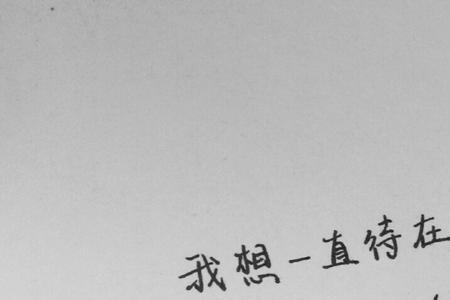 我想一直待在